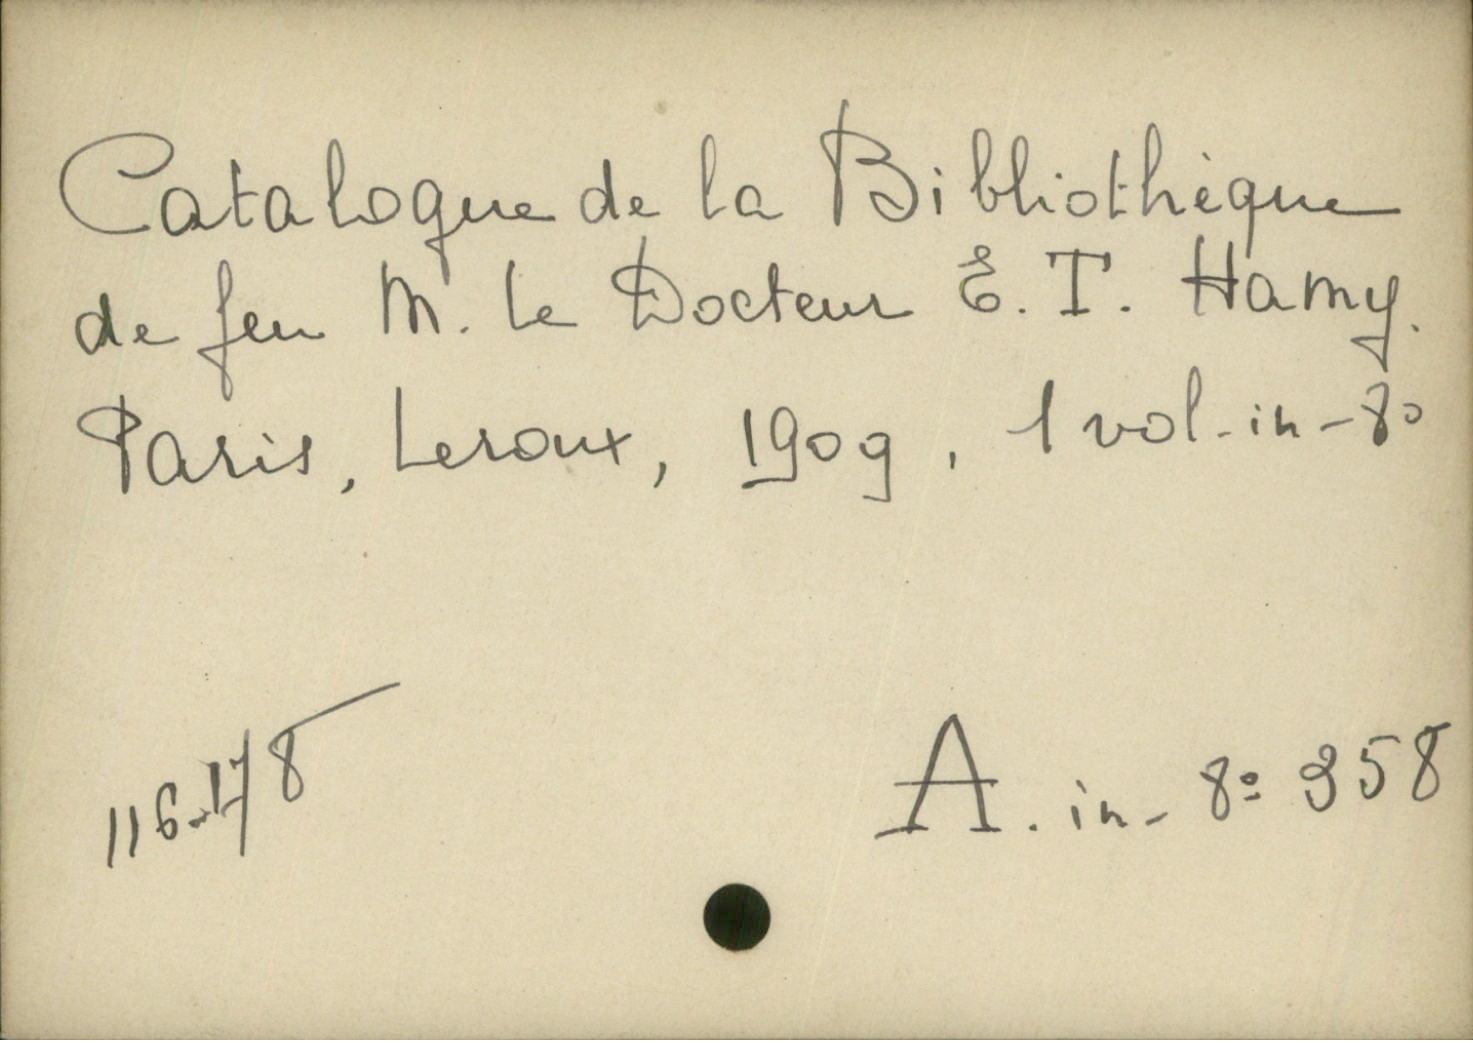 Catalogue de la Bibliothèque
de feu M. le Docteur E. T. Hamy.
Paris, Leroux, 1909, 1 vol. in-8º
116.178
A. in-8º 358